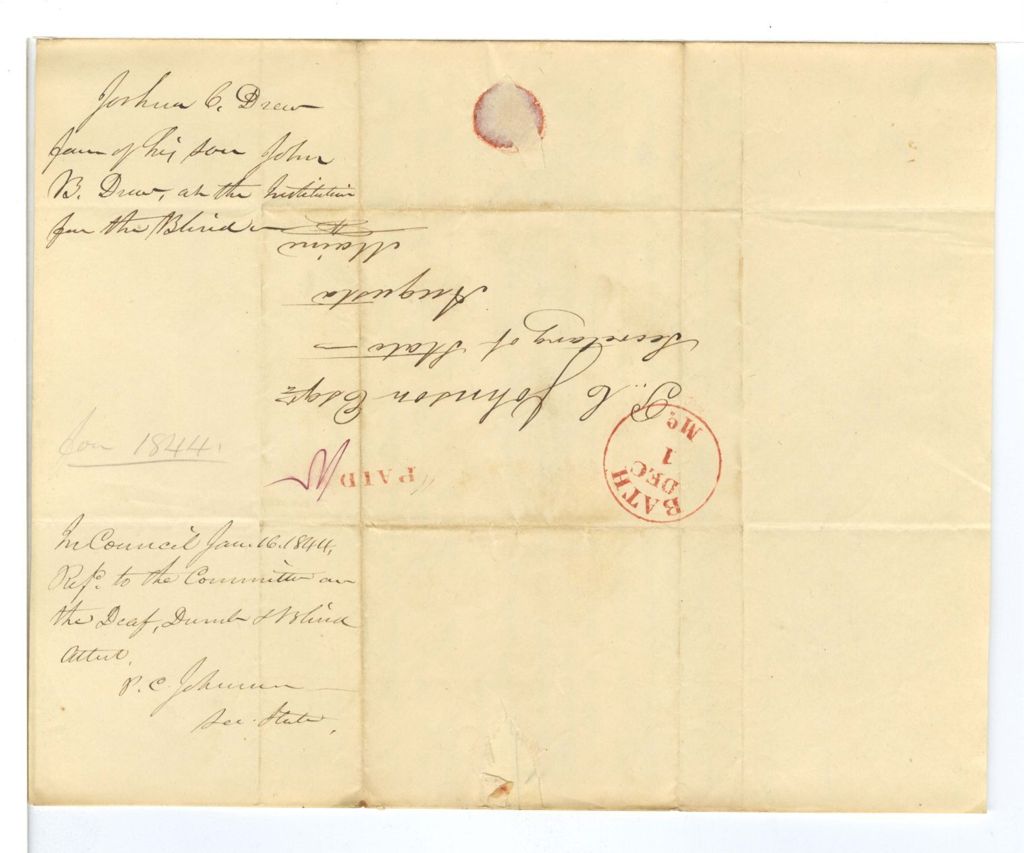 Joshua C. Drew
fav of his son John
B. Drew, at the Institution
for the Blind
P. C. Johnson Esqr
Secretary of State
Augusta
Maine
PAID
BATH
DEC
1
Me
Jan 1844.
In Council Jan. 16. 1844.
Refd. to the Committee on
the Deaf, Dumb & Blind
Attest,
P. C. Johnson
Sec. State.